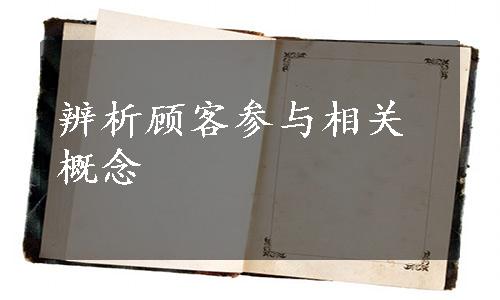 辨析顾客参与相关
概念